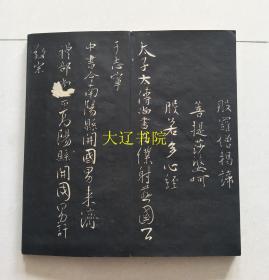 般羅僧揭諦
菩提莎婆呵
般若多心經
太子太傅尚書左僕射燕國公
于志寧
中書令南陽縣開國男來濟
禮部尚
高陽縣開國男許
敬宗
大辽书院